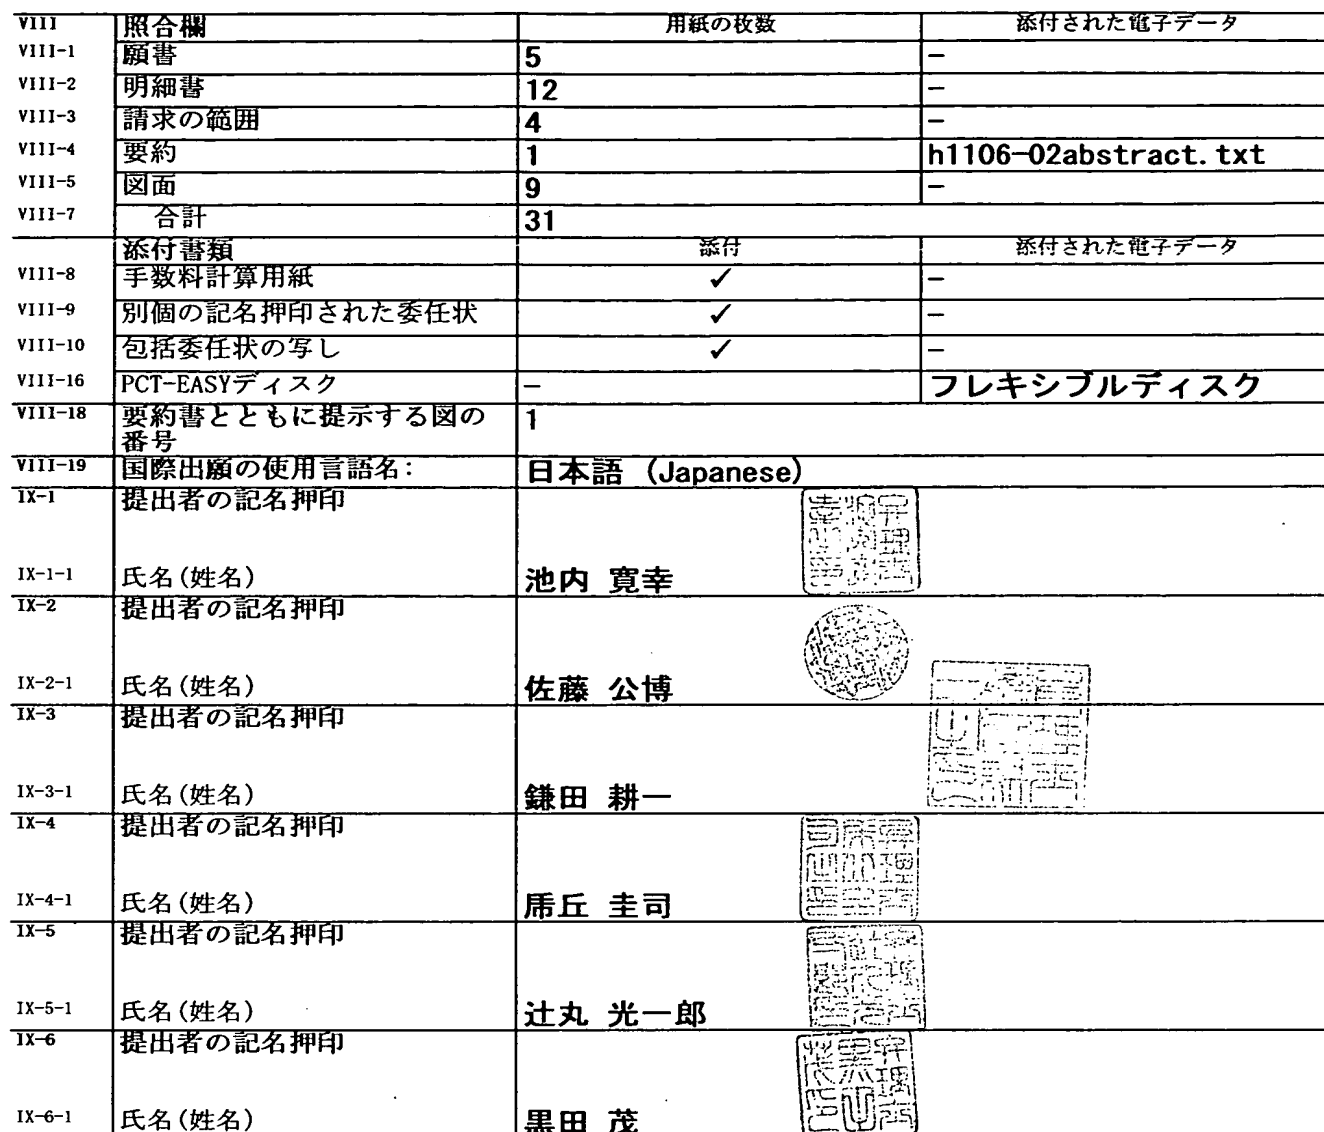 VIII 照合欄 用紙の枚数 添付された電子データ
VIII-1 願書 5 -
VIII-2 明細書 12 -
VIII-3 請求の範囲 4 -
VIII-4 要約 1 h1106-02abstract.txt
VIII-5 図面 9 -
VIII-7 合計 31
添付書類 添付 添付された電子データ
VIII-8 手数料計算用紙 ✓ -
VIII-9 別個の記名押印された委任状 ✓ -
VIII-10 包括委任状の写し ✓ -
VIII-16 PCT-EASYディスク - フレキシブルディスク
VIII-18 要約書とともに提示する図の 1
番号
VIII-19 国際出願の使用言語名: 日本語 (Japanese)
IX-1 提出者の記名押印
IX-1-1 氏名(姓名) 池内 寛幸
IX-2 提出者の記名押印
IX-2-1 氏名(姓名) 佐藤 公博
IX-3 提出者の記名押印
IX-3-1 氏名(姓名) 鎌田 耕一
IX-4 提出者の記名押印
IX-4-1 氏名(姓名) 乕丘 圭司
IX-5 提出者の記名押印
IX-5-1 氏名(姓名) 辻丸 光一郎
IX-6 提出者の記名押印
IX-6-1 氏名(姓名) 黒田 茂